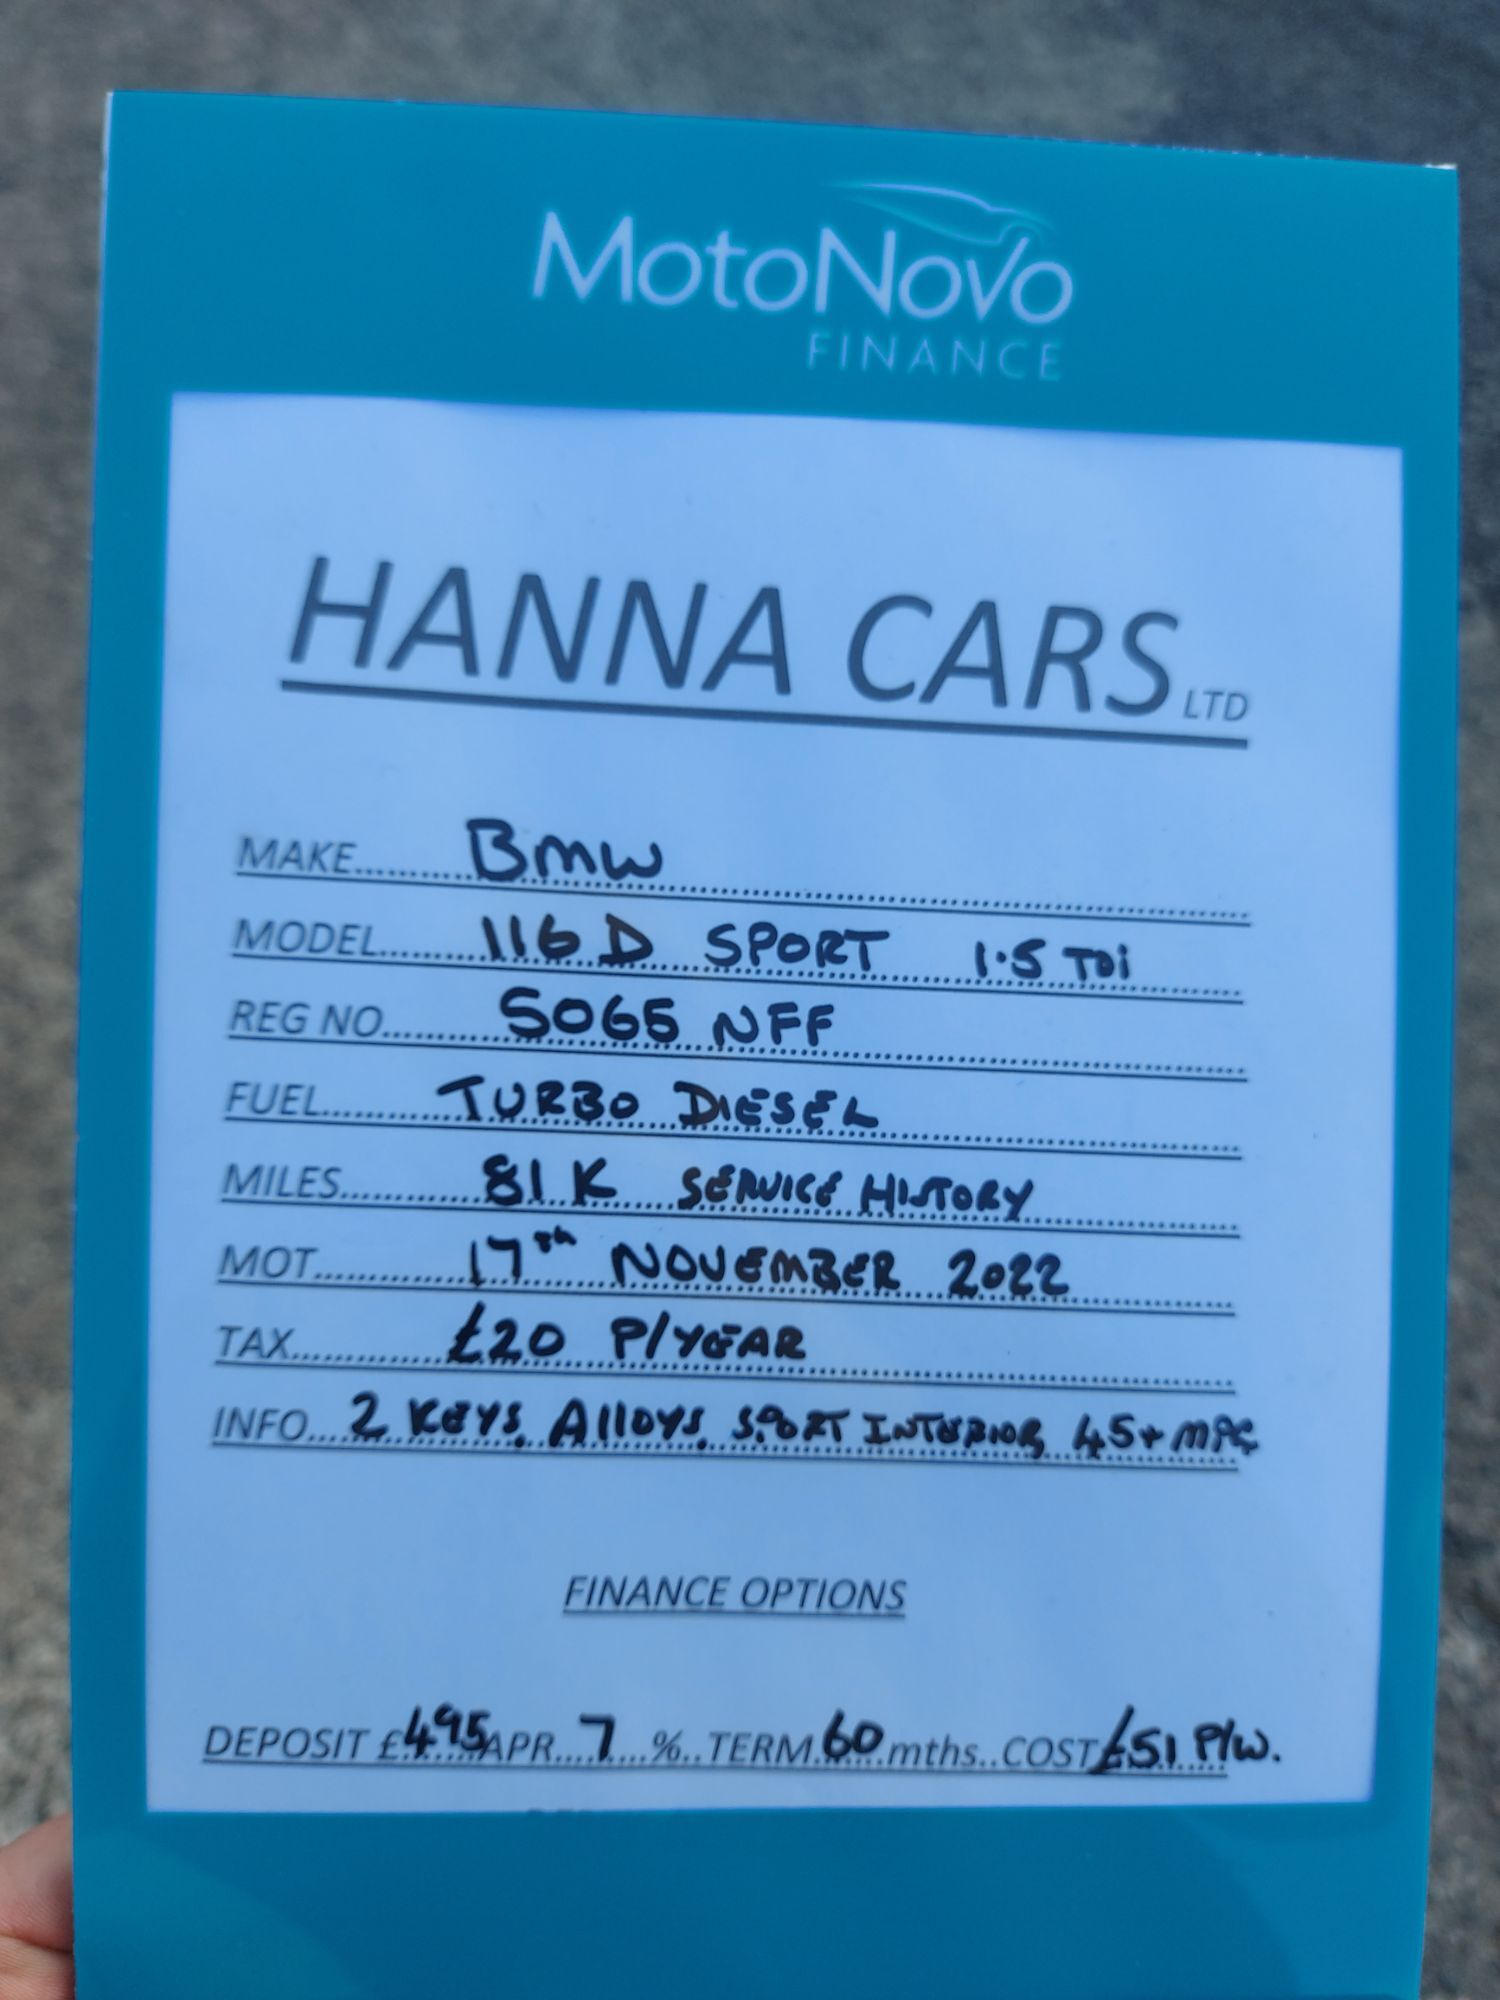 MotoNovo
FINANCE
HANNA CARS LTD
MAKE.......BMW.......
MODEL.......116D SPORT 1.5 TDi.......
REG NO.......SO65 NFF.......
FUEL.......TURBO DIESEL.......
MILES.......81K SERVICE HISTORY.......
MOT.......17th NOVEMBER 2022.......
TAX.......£20 P/YEAR.......
INFO....2 KEYS. Alloys. SPORT INTERIOR 45+ MPG
FINANCE OPTIONS
DEPOSIT £495 APR....7....%..TERM.60...mths..COST £51 P/W.